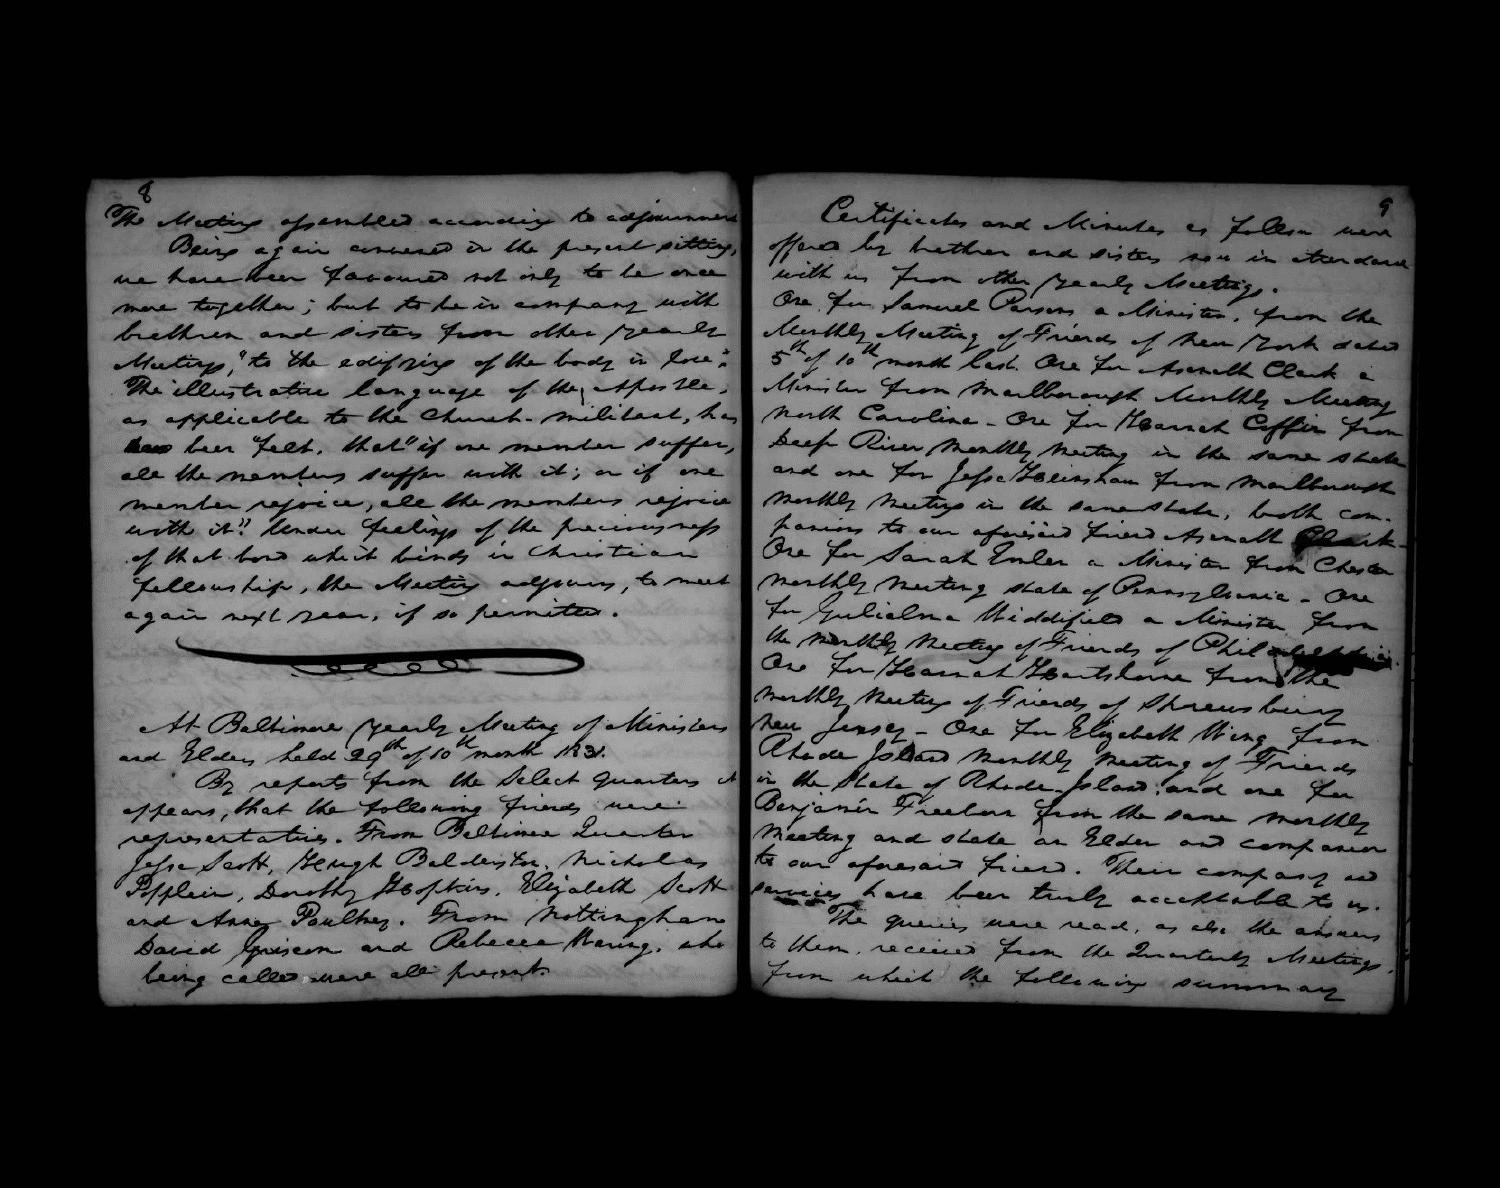 8
The Meeting assembled according to adjournment
Being again convened in the present sitting,
we have been favoured not only to be once
more together; but to be in company with
brethren and sisters from other Yearly
Meetings, "to the edifying of the body in love".
The illustrative language of the Apostle,
as applicable to the Church-militant, has
been felt, that "if one member suffer,
all the members suffer with it; or if one
member rejoice, all the members rejoice
with it". Under feelings of the preciousness
of that bond which binds in Christian
fellowship, the Meeting adjourns, to meet
again next year, if so permitted.
At Baltimore Yearly Meeting of Ministers
and Elders held 29th of 10th month 1831.
By reports from the Select quarters it
appears, that the following friends were
representatives. From Baltimore Quarter
Jesse Scott, Hugh Balderston, Nicholas
Popplein, Dorothy Hopkins, Elizabeth Scott
and Anne Poultney. From Nottingham
David Griscom and Rebecca Waring, who
being called were all present.
9
Certificates and Minutes as follow were
offered by brethren and sisters now in attendance
with us from other Yearly Meetings.
One for Samuel Parsons a Minister, from the
Monthly Meeting of Friends of New York dated
5th of 10th month last. One for Asenath Clark a
Minister from Marlborough Monthly Meeting
North Carolina - One for Hannah Coffin from
Deep River Monthly Meeting in the same state
and one for Jesse Henshaw from Marlborough
Monthly Meeting in the same state, both com-
panions to our aforesaid friend Asenath Clark -
One for Sarah Emlen a Minister from Chester
Monthly Meeting state of Pennsylvania - One
for Gulielma Widdifield a Minister from
the Monthly Meeting of Friends of Philadelphia
One for Hannah Hartshorne from the
Monthly Meeting of Friends of Shrewsbury
New Jersey - One for Elizabeth Wing from
Rhode Island Monthly Meeting of Friends
in the State of Rhode-Island; and one for
Benjamin Freeborn from the same Monthly
Meeting and state an Elder and companion
to our aforesaid friend. Their company and
services have been truly acceptable to us.
The queries were read, as also the answers
to them, received from the Quarterly Meetings,
from which the following summary